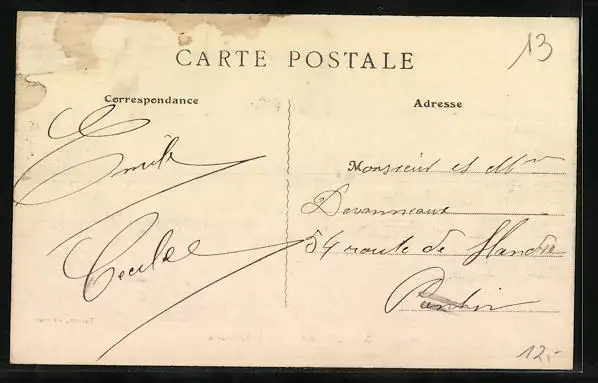 CARTE POSTALE
13
Correspondance
Adresse
Emile
Cecile
Monsieur et Mme
Devanneaux
54 route de Flandre
Pantin
12,-